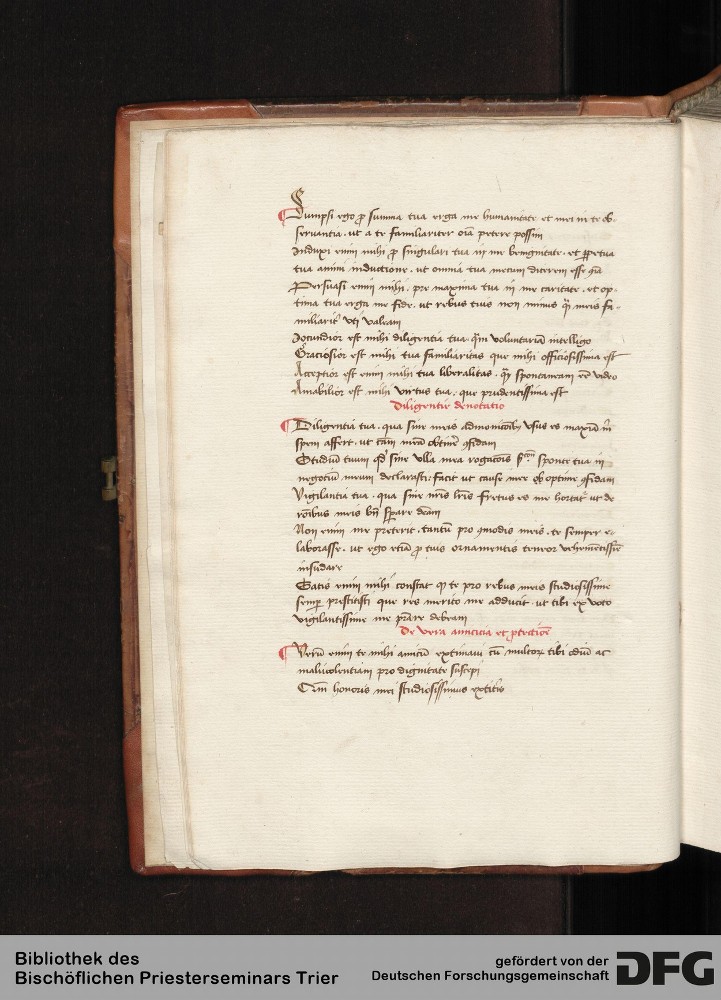 Sumpsi ego p̱ summa tua erga me humanitate et mei in te ob-
servantia · ut a te familiariter oīa petere possim
Induxi enim mihi p̱ singulari tua in me benignitate · et p̱petua
tua animi inductione · ut omnia tua mecum dicerem esse
Persuasi enim mihi · pre maxima tua in me caritate · et op-
tima tua erga me fide · ut rebus tuis non minus q̄ meis fa-
miliarit᷑ uti valeam
Jocundior est mihi diligentia tua · q̄m voluntariā intelligo
Graciosior est mihi tua familiaritas que mihi officiosissima est
Acceptior est enim mihi tua liberalitas · q̄ spontaneam eē video
Amabilior est mihi virtus tua · que prudentissima est
Diligentie denotatio
Diligentia tua · qua sine meis usus es maxīa m̄
spem affert · ut obtinē ꝯfidam
Studiū tuum qḏ sine ulla mea rogatiōis sponte tua in
negotiū meum declarasti · facit ut cause mee optime ꝯfidam
Vigilantia tua · qua sine nr̄is lr̄is fretus es me hortat᷑ ut de
meis bn̄ sp̱are
Non enim me preterit · tantū pro ꝯmodis meis · te semper e-
laborasse · ut ego etiā p̱ tuis ornamentis teneor vehemētissīe
insudare
Satis enim mihi constat ꝙ te pro rebus meis studiosissime
semp̱ prestitisti que res merito me adducit · ut tibi ex voto
vigilantissime me debeam
De vera amicicia et ꝓtectiōe
Verū enim te mihi amicū extimavi cū multoꝝ tibi odiū ac
malivolentiam pro dignitate suscepi
honoris mei studiosissimus extitis
Bibliothek des
Bischöflichen Priesterseminars Trier
gefördert von der
Deutschen Forschungsgemeinschaft
DFG